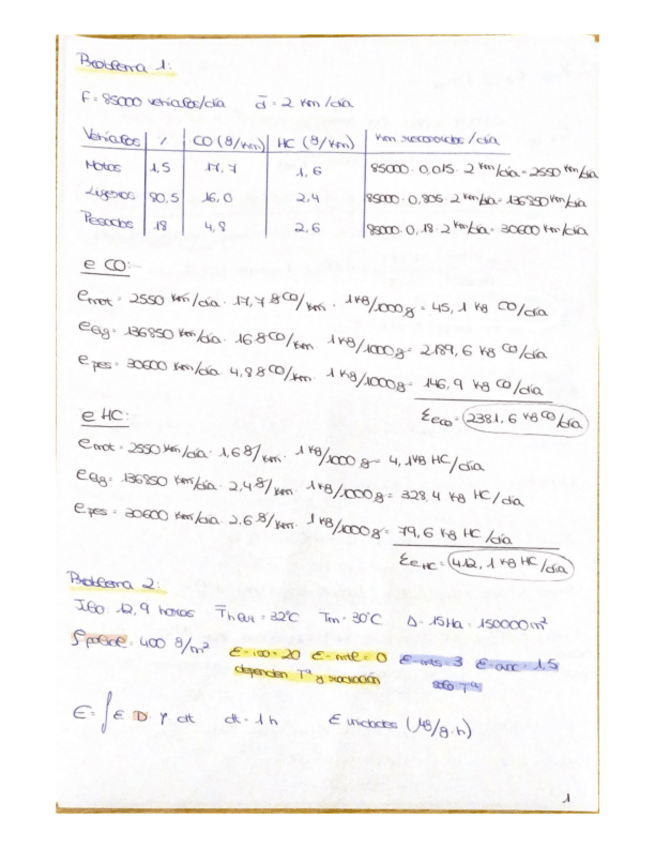 Problema 1:
F = 85000 vehículos/día d̄ = 2 km/día
Vehículos | % | CO (g/km) | HC (g/km) | km recorridos/día
Motos | 1,5 | 17,7 | 1,6 | 85000 · 0,015 · 2 km/día = 2550 km/día
Ligeros | 80,5 | 16,0 | 2,4 | 85000 · 0,805 · 2 km/día = 136850 km/día
Pesados | 18 | 4,8 | 2,6 | 85000 · 0,18 · 2 km/día = 30600 km/día
e CO:
emot = 2550 km/día · 17,7 g CO/km · 1 kg/1000 g = 45,1 kg CO/día
elig = 136850 km/día · 16 g CO/km · 1 kg/1000 g = 2189,6 kg CO/día
epes = 30600 km/día · 4,8 g CO/km · 1 kg/1000 g = 146,9 kg CO/día
Σe CO = 2381,6 kg CO/día
e HC:
emot = 2550 km/día · 1,6 g/km · 1 kg/1000 g = 4,1 kg HC/día
elig = 136850 km/día · 2,4 g/km · 1 kg/1000 g = 328,4 kg HC/día
epes = 30600 km/día · 2,6 g/km · 1 kg/1000 g = 79,6 kg HC/día
Σe HC = 412,1 kg HC/día
Problema 2:
12,9 horas = 32°C Tm = 30°C 15 Ha = 150000 m²
= 400 g/m² E-iso = 20 E-mtl = 0 E-mts = 3 1,5
dependen Tª y radiación sólo Tª
E = ∫ E D γ dt dt = 1 h E unidades (μg/g·h)
1